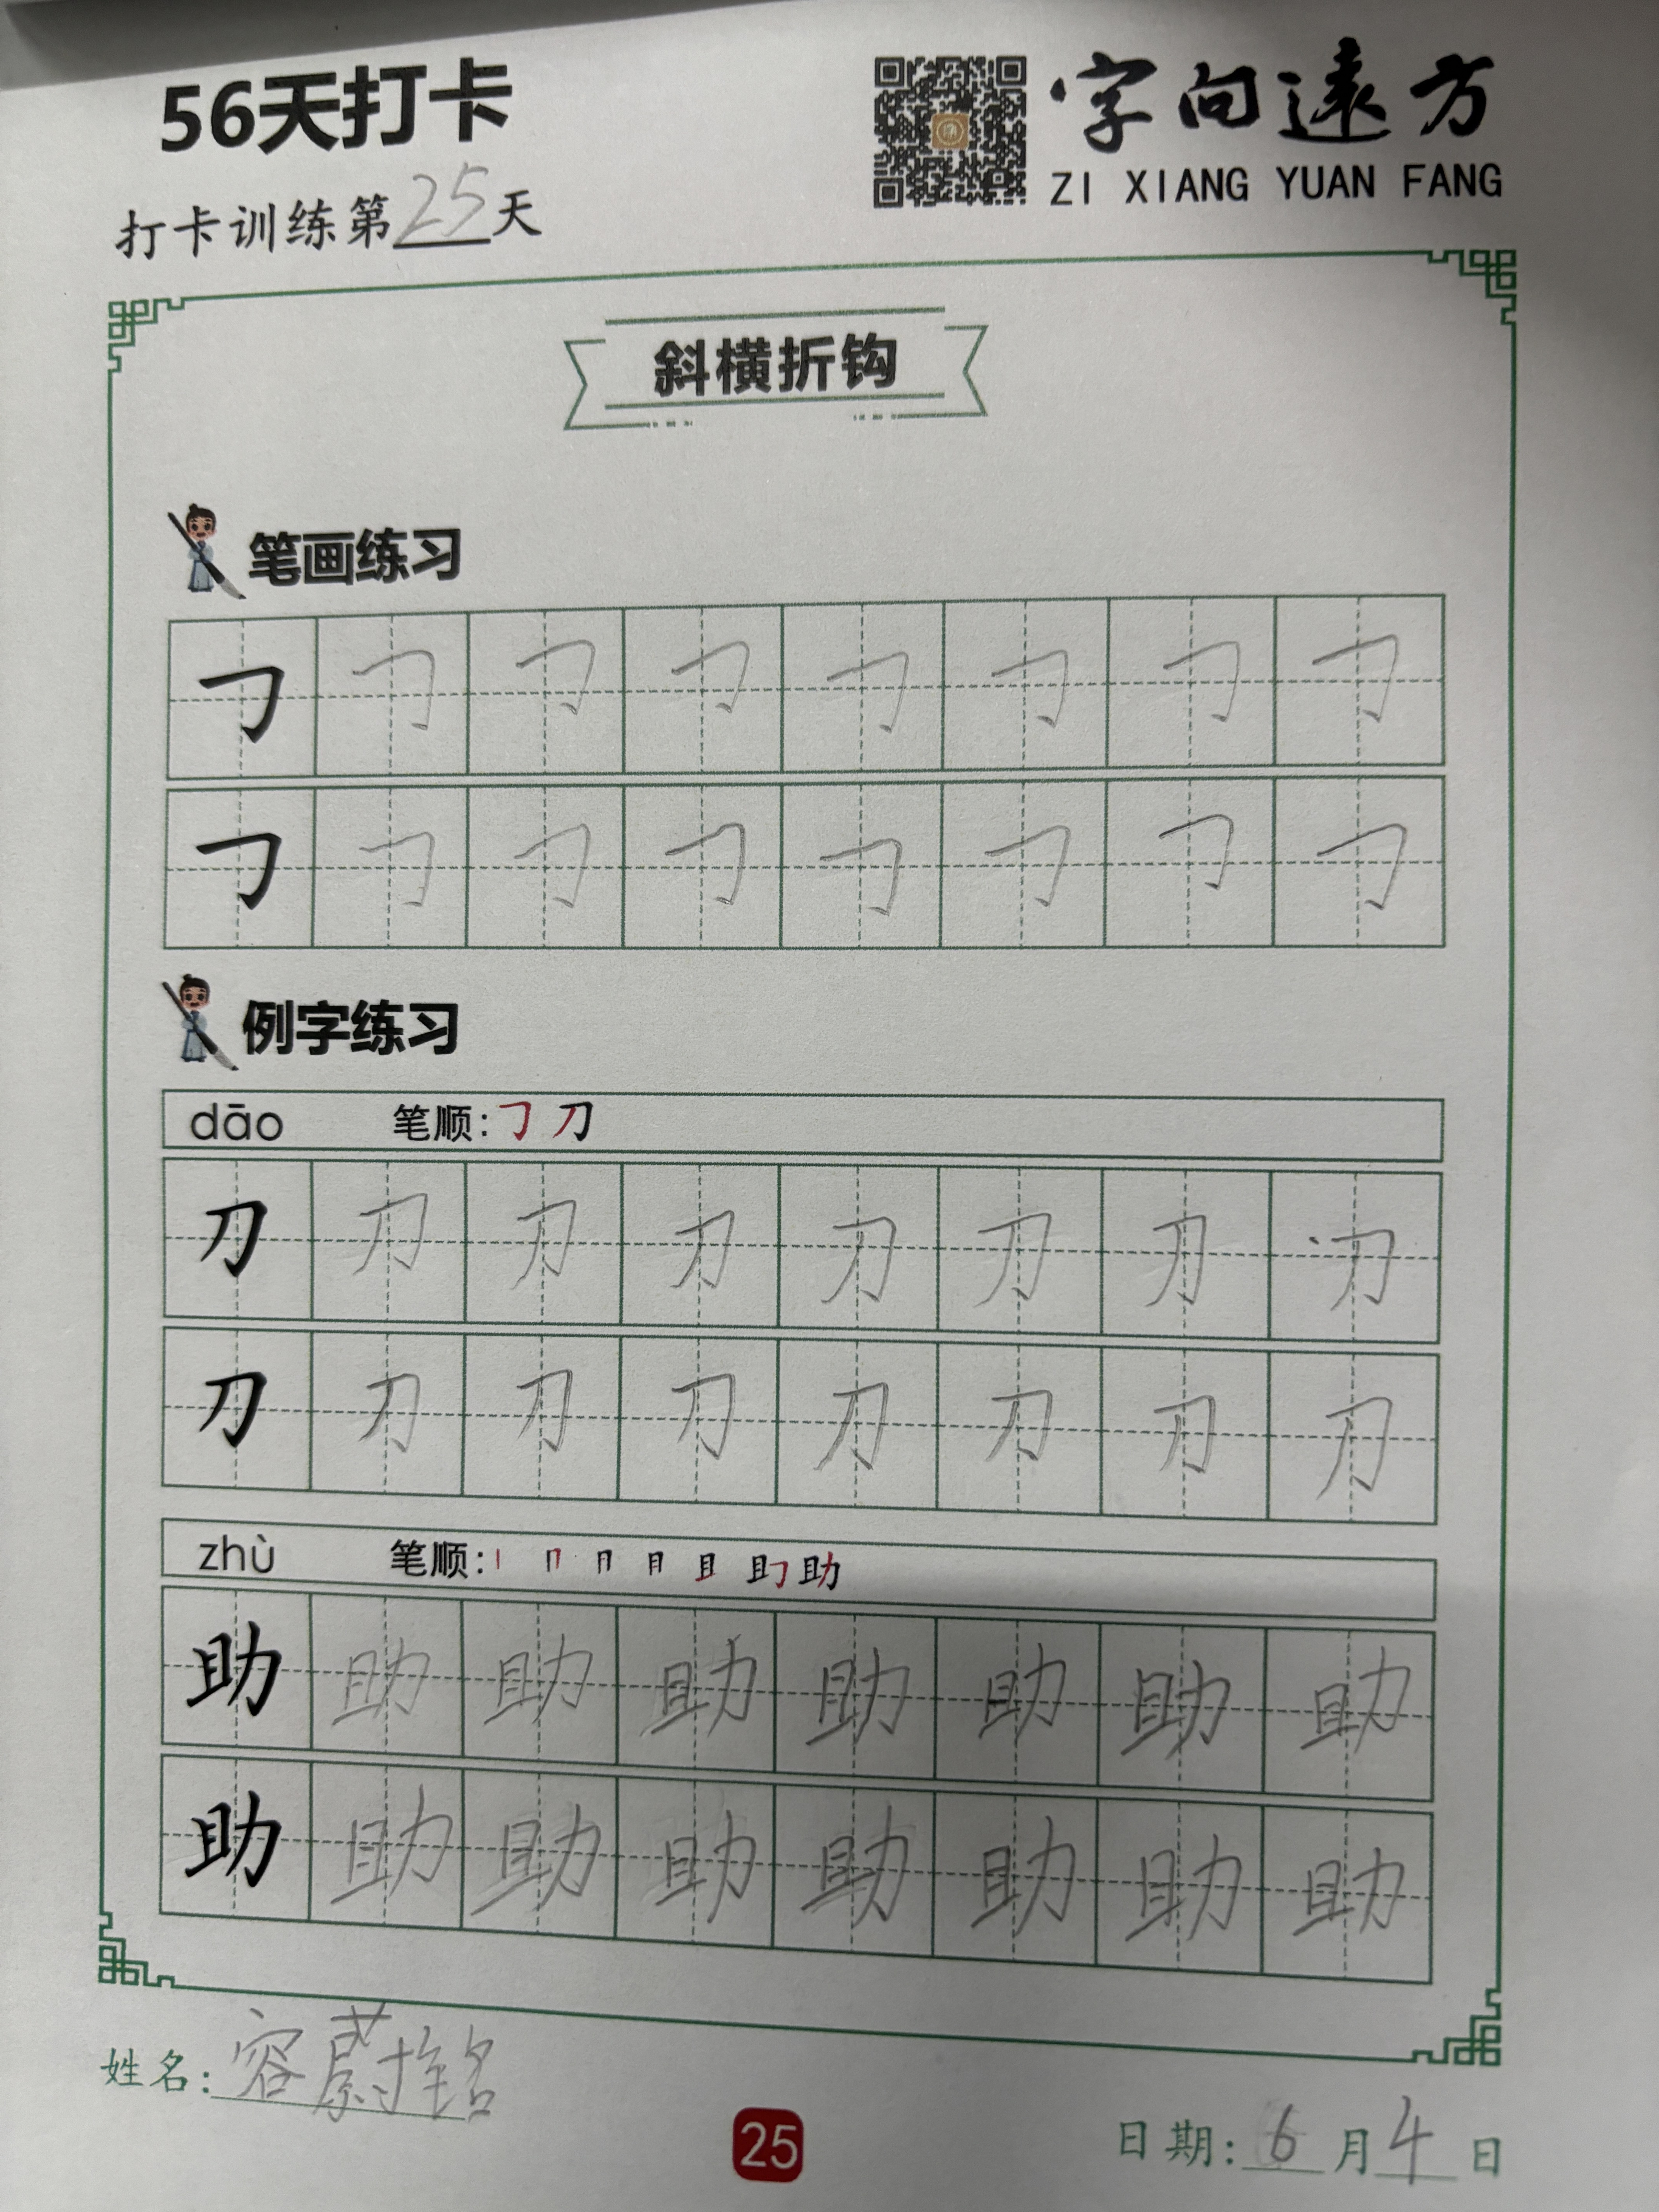 56天打卡
字向遠方
ZI XIANG YUAN FANG
打卡训练第25天
斜横折钩
笔画练习
𠃌 𠃌 𠃌 𠃌 𠃌 𠃌 𠃌 𠃌
𠃌 𠃌 𠃌 𠃌 𠃌 𠃌 𠃌 𠃌
例字练习
dāo 笔顺: 𠃌 刀
刀 刀 刀 刀 刀 刀 刀 刀
刀 刀 刀 刀 刀 刀 刀 刀
zhù 笔顺: 丨 冂 月 且 助
助 助 助 助 助 助 助 助
助 助 助 助 助 助 助 助
姓名:容蔚铭
25
日期:6月4日